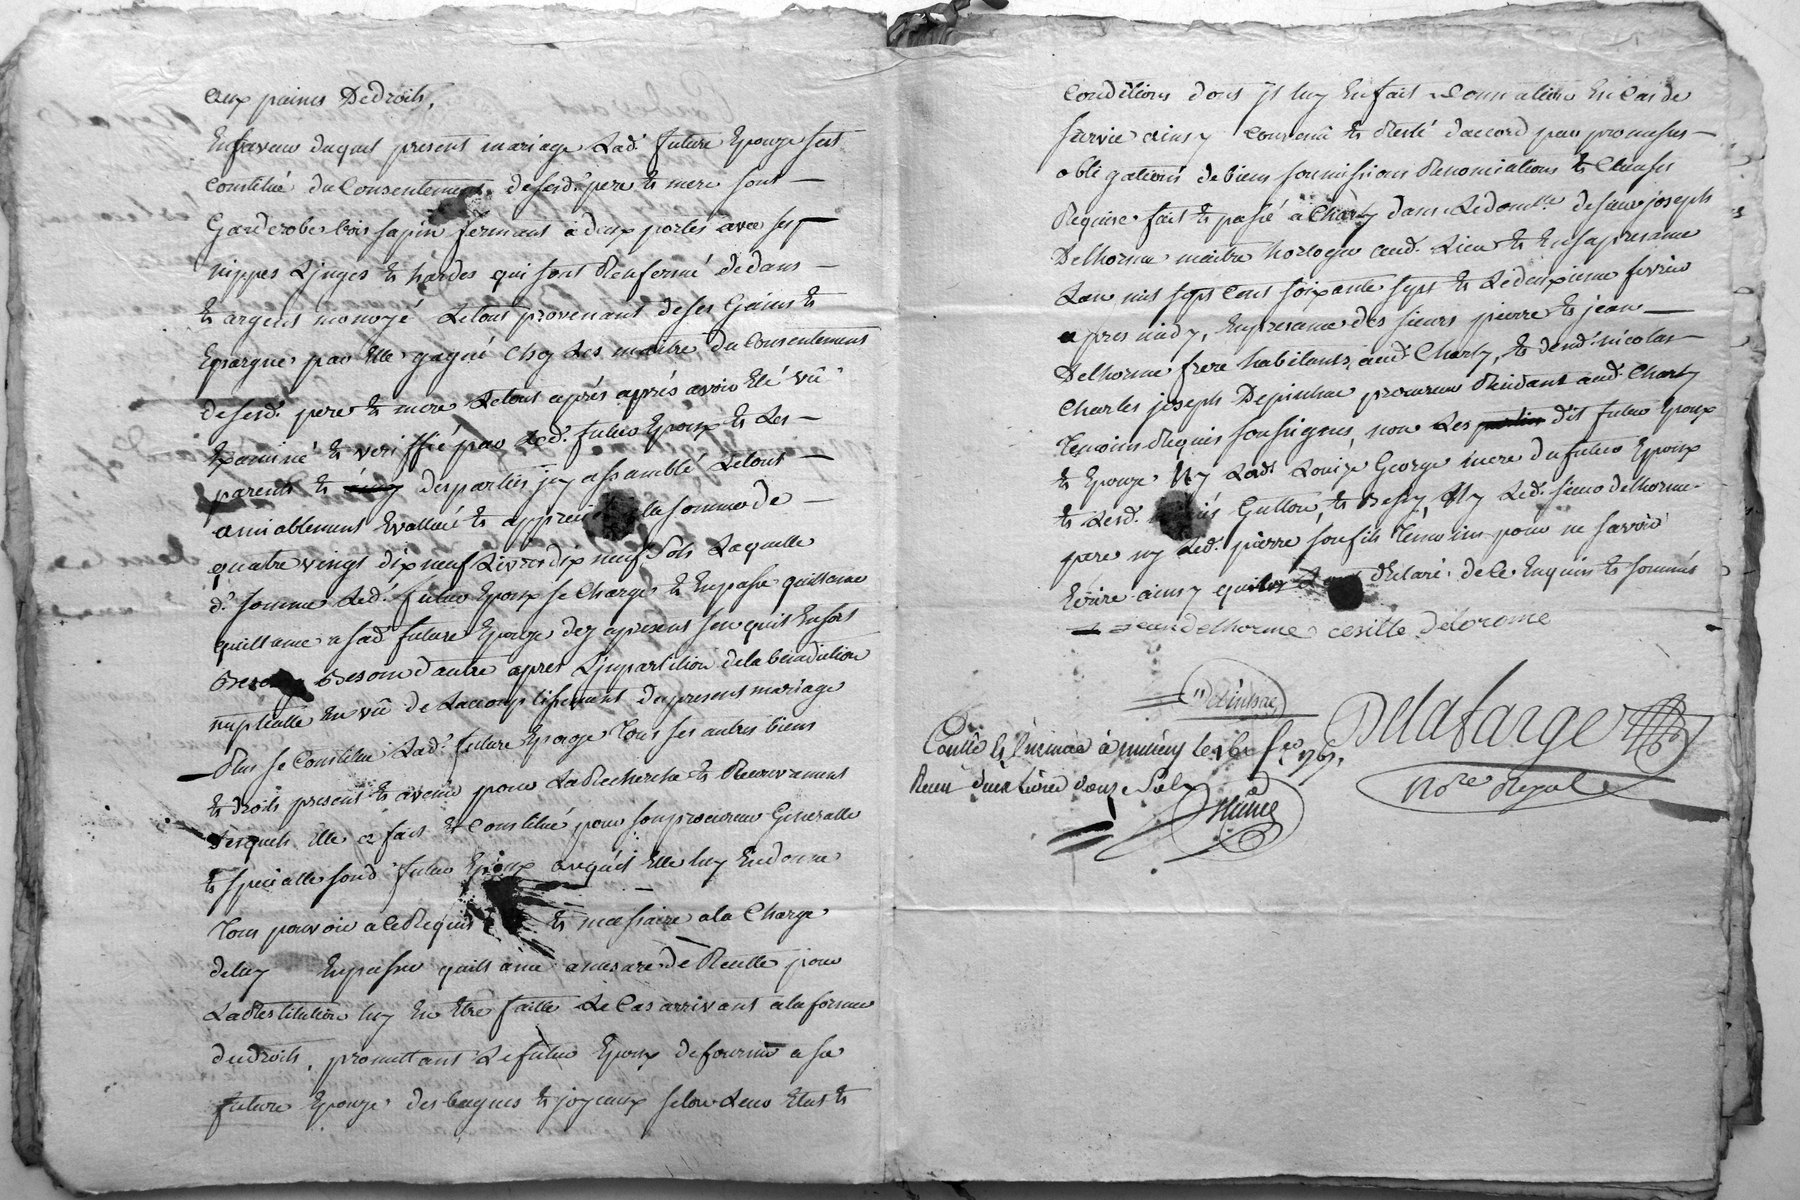 aux peines Dedroit,
Enfaveur duquel present mariage Lad. future Epouze sest
Constitué du Consentement desesd. pere et mere sont
Garderobe bois sapin fermant a deux portes avec ses
nippes Linges et hardes qui sont Renfermé dedans
et argent monoyé Letout provenant de ses Gains et
Epargne par Elle gagné Chez Les maitre du Consentement
desesd. pere et mere Letout aprés aprés avoir Eté vû
Examiné et veriffié par Led. futur Epoux et Les
parents et desparties jcy assamblé Letout
amiablement Evallué et la somme de
quatre vingt dix neuf Livres dix neuf sols Laquelle
d. somme Led. futur Epoux se Charge et Enpasse quittance
quittance a sad. future Epouze dez apresent sen quil Ensoit
Besoin dautre apres Limpartition dela benediction
nuptialle En vû de Laccomplissement dupresent mariage
Plus se Constitue Lad. future Epouze Tous ses autres biens
et droits present et avenir pour La Recherche et Recouvrement
desquels Elle a fait et Constitué pour son procureur Generalle
et specialle sond. futur Epoux auquel Elle luy Endonne
Tous pouvoir a ce Requis et necessaire ala Charge
deluy Enpasser quittance amesure de Recette pour
LaRestitution luy En Etre faitte Le Cas arrivant ala forme
dudroit, promettant Le futur Epoux defournir a sa
future Epouze des bagues et joyeaux selon Leur Etat et
Conditions dont jl luy En fait Donnation En Cas de
survie ainsy convenû et Resté daccord par promesses
obligations de biens soumissions Renonciations et Clauses
Requise fait et passé a Charly dans Ledomlle. desieur joseph
Delhorme maitre horloger aud. Lieu et En sa presance
Lan mil sept cent soixante sept et Ledeuxieme fevrier
apres midy, Enpresance des sieurs pierre et jean
Delhorme frere habitants aud. Charly, et de nicolas
Charles joseph Depinhac procureur Residant aud. Charly
Temoins Requis soussignes, non Les dit futur Epoux
et Epouze Ny Lad. Louize George mere du futur Epoux
et Lesd. Gutton, et Bessy, Ny Led. sieur delhorme
pere ny Led. pierre son fils Temoins pour ne savoir
Ecrire ainsy quils declaré de ce Enquis et sommés
jean delhorme cesille delorome
Depinhac
Delafarge
Nore Royal
Contlé et Insinué à le fev. 1767.
Recu deux Livres douze Sols